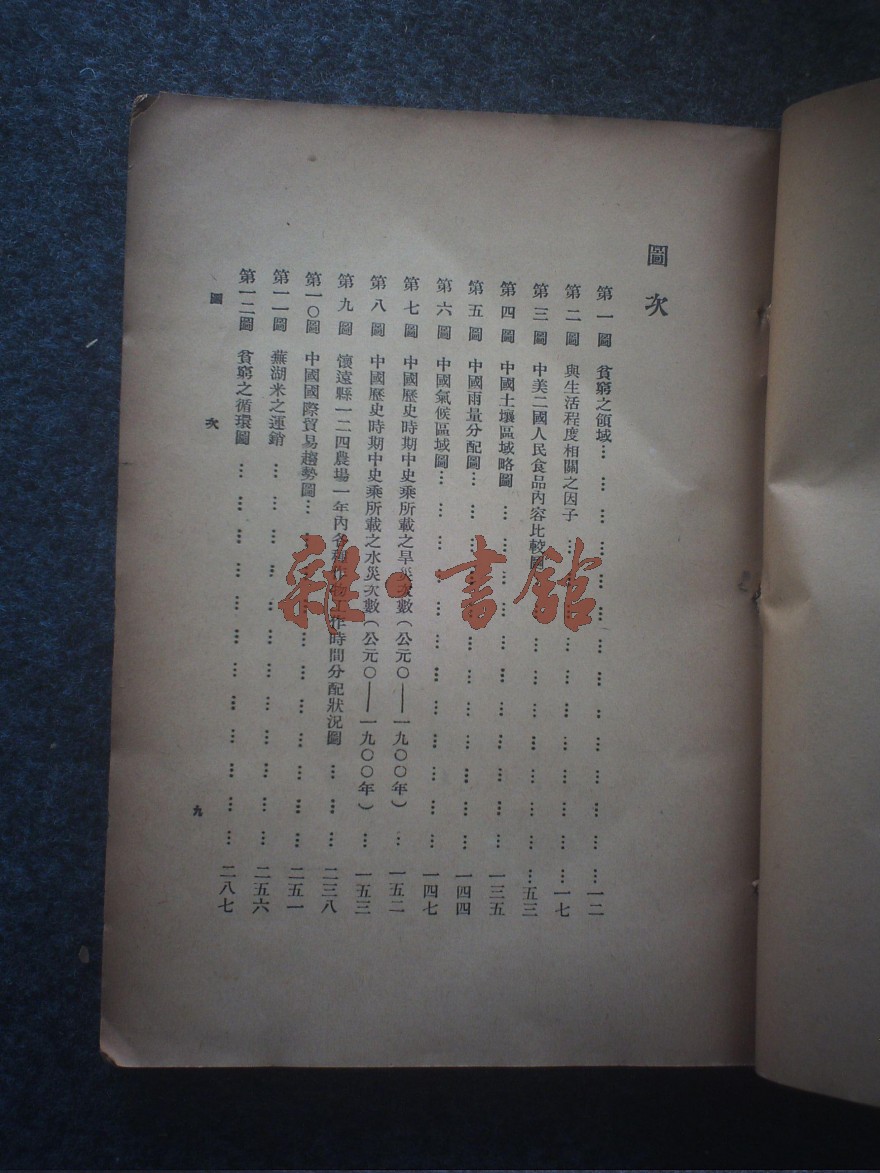 圖次
第一圖 貧窮之領域… … … … … … … … … … … … …一二
第二圖 與生活程度相關之因子 … … … … … … … … … …一七
第三圖 中美二國人民食品內容比較圖 … … … … … … … …五三
第四圖 中國土壤區域略圖 … … … … … … … … … … …一三五
第五圖 中國雨量分配圖… … … … … … … … … … … …一四四
第六圖 中國氣候區域圖… … … … … … … … … … … …一四七
第七圖 中國歷史時期中史乘所載之旱災次數(公元〇——一九〇〇年) …一五二
第八圖 中國歷史時期中史乘所載之水災次數(公元〇——一九〇〇年) …一五三
第九圖 懷遠縣一二四農場一年內各種作物工作時間分配狀況圖 … … …二三八
第一〇圖 中國國際貿易趨勢圖… … … … … … … … … … …二五一
第一一圖 蕪湖米之運銷 … … … … … … … … … … … …二五六
第一二圖 貧窮之循環圖 … … … … … … … … … … … …二八七
圖次
九
雜·書館